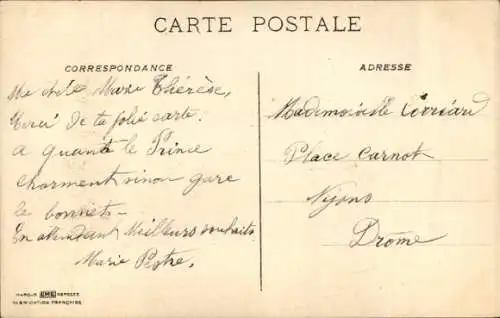 CARTE POSTALE
CORRESPONDANCE
ADRESSE
Ma chère Marie Thérèse,
Merci de ta jolie carte.
A quand le Prince
charment sinon gare
le bonnet.
En attendant Meilleurs souhaits
Marie
Mademoiselle
Place Carnot
Nyons
Drôme
MARQUE EME DEPOSEE
FABRICATION FRANÇAISE